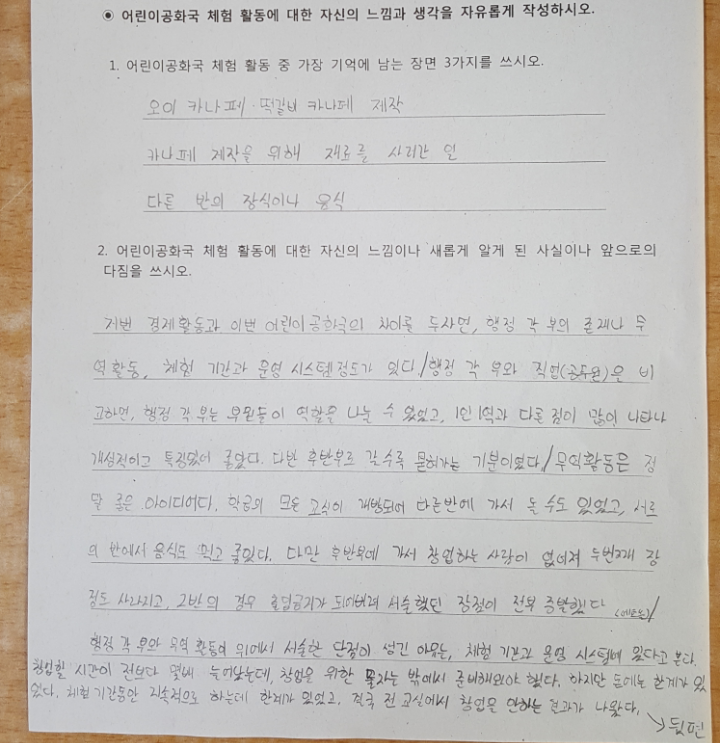 ◉ 어린이공화국 체험 활동에 대한 자신의 느낌과 생각을 자유롭게 작성하시오.
1. 어린이공화국 체험 활동 중 가장 기억에 남는 장면 3가지를 쓰시오.
오이 카나페·떡갈비 카나페 제작
카나페 제작을 위해 재료를 사러간 일
다른 반의 장식이나 음식
2. 어린이공화국 체험 활동에 대한 자신의 느낌이나 새롭게 알게 된 사실이나 앞으로의
다짐을 쓰시오.
저번 경제활동과 이번 어린이공화국의 차이를 두자면, 행정 각 부의 존재나 무
역활동, 체험 기간과 운영 시스템정도가 있다./행정 각 부와 직업(공무원)은 비
교하면, 행정 각 부는 부원들이 역할을 나눌 수 있었고, 1인 1역과 다른 점이 많이 나타나
개성적이고 특징있어 좋았다. 다만 후반부로 갈수록 묻혀가는 기분이었다./무역활동은 정
말 좋은 아이디어다. 학급의 모든 교실이 개방되어 다른반에 가서 놀 수도 있었고, 서로
의 반에서 음식도 먹고 좋았다. 다만 후반부에 가서 창업하는 사람이 없어져 두번째 장
점도 사라지고, 2반의 경우 출입금지가 되어버려 서술했던 장점이 전부 증발했다
행정 각 부와 무역 활동에 위에서 서술한 단점이 생긴 이유는, 체험 기간과 운영 시스템에 있다고 본다.
창업할 시간이 전보다 몇배 늘어났는데, 창업을 위한 물자는 밖에서 준비해와야 했다. 하지만 돈에는 한계가 있
었다. 체험기간동안 지속적으로 하는데 한계가 있었고, 결국 전 교실에서 창업을 안하는 결과가 나왔다.
↘뒷면